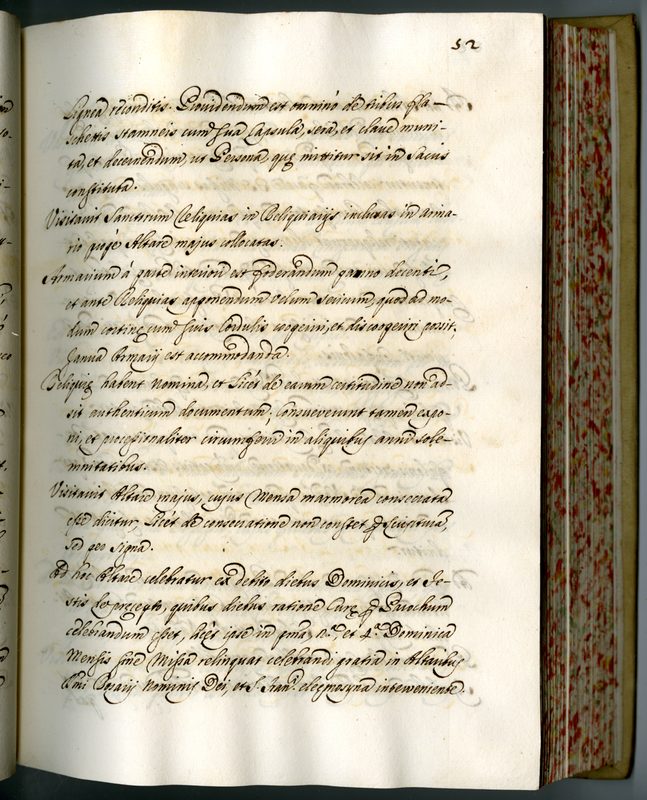 52
Lignea reconditis. Providendum est omninò de tribus Fla-
schettis stamneis cum sua Capsula, sera, et clave muni-
ta, et decernendum, ut Persona, quę mittitur sit in Sacris
constituta.
Visitavit Sanctorum Reliquias in Reliquiarijs inclusas in arma-
rio propè Altare majus collocatas.
Armarium à parte interiori est foderandum panno decenti,
et ante Reliquias apponendum velum sericum, quod ad mo-
dum cortinę cum suis Cordulis cooperiri, et discooperiri possit,
Janua Armarij est accommodanda.
Reliquię habent nomina, et licèt de earum certitudine non ad-
sit authenticum documentum, Consueverunt tamen expo-
ni, et processionaliter circumferri in aliquibus anni sole-
mnitatibus.
Visitavit Altare majus, cujus Mensa marmorea consecrata
esse dicitur, licèt de consecratione non constet per scripturam,
sed per signa.
Ad hoc Altare celebratur ex debito diebus Dominicis, et Fe-
stis de precepto, quibus diebus ratione Curę per Parochum
celebrandum esset, licèt ipse in prima, 2.ª et 4.ª Dominica
Mensis sine Missa relinquat celebrandi gratia in Altaribus
SSmi Rosarij Nominis Dei, et S. Fran.ci eleęmosyna interveniente